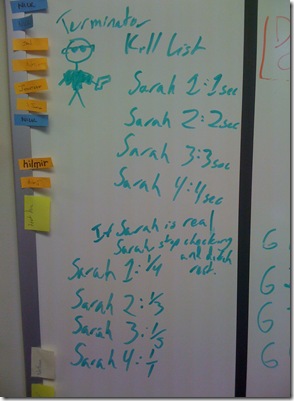 NICK
Terminator
Kill List
Sarah 1:1sec
Sarah 2:2sec
Sarah 3:3sec
Sarah 4:4sec
Nick
hilmir
If Sarah is real
Sarah stop checking
and ditch
rest.
Sarah 1: 1/4
Sarah 2: 1/3
Sarah 3: 1/5
Sarah 4: 1/1
6
6
6
6